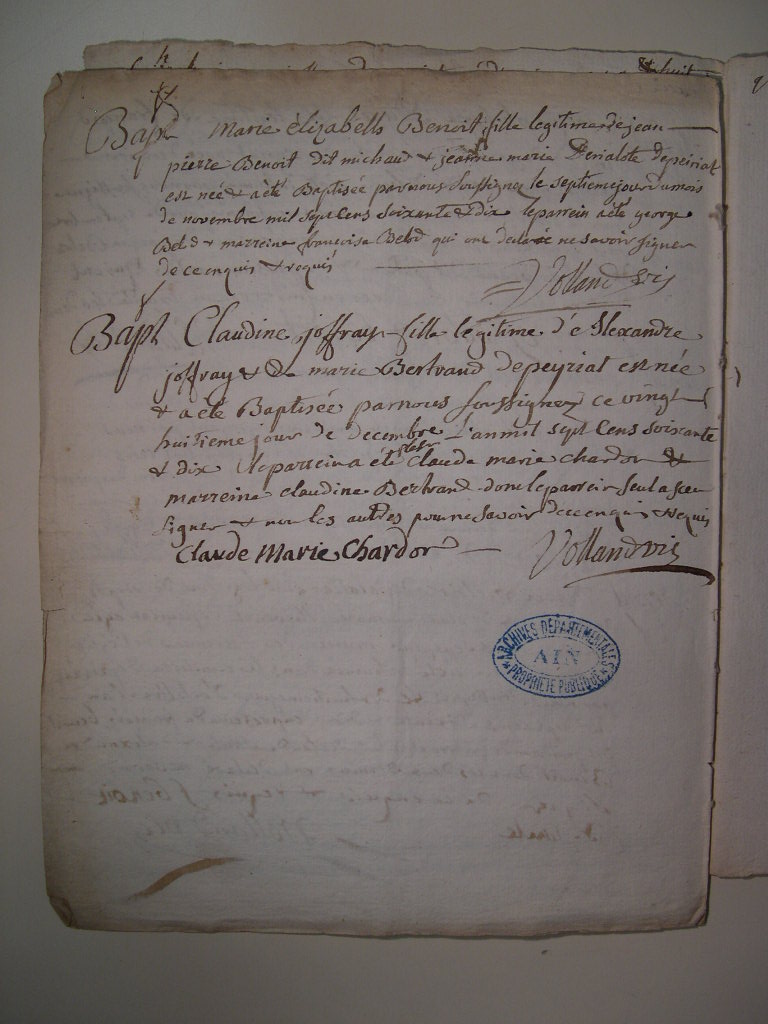 huit
Bapt Marie élizabeth Benoit fille legitime de jean
pierre Benoit dit michaud & jeanne marie Derialote depeiriat
est née & a été Baptisée par nous Soussignez le septieme jour du mois
de novembre mil sept cens soixante & dix le parrein a été george
Belod & marreine francoise Belod qui ont declaré ne savoir signer
de ce enquis & requis
Volland vic
Bapt Claudine joffray fille legitime d'e Alexandre
joffray & De marie Bertrand depeyriat est née
& a été Baptisée par nous Soussignez ce vingt
huitieme jour de decembre L'an mil sept Cens soixante
& dix le parrein a été Claude marie chardon &
marreine claudine Bertrand dont le parrein seul a sceu
signer & non les autres pour ne savoir de ce enquis & requis
Claude Marie Chardon Volland vic
ARCHIVES DÉPARTEMENTALES
AIN
PROPRIÉTÉ PUBLIQUE